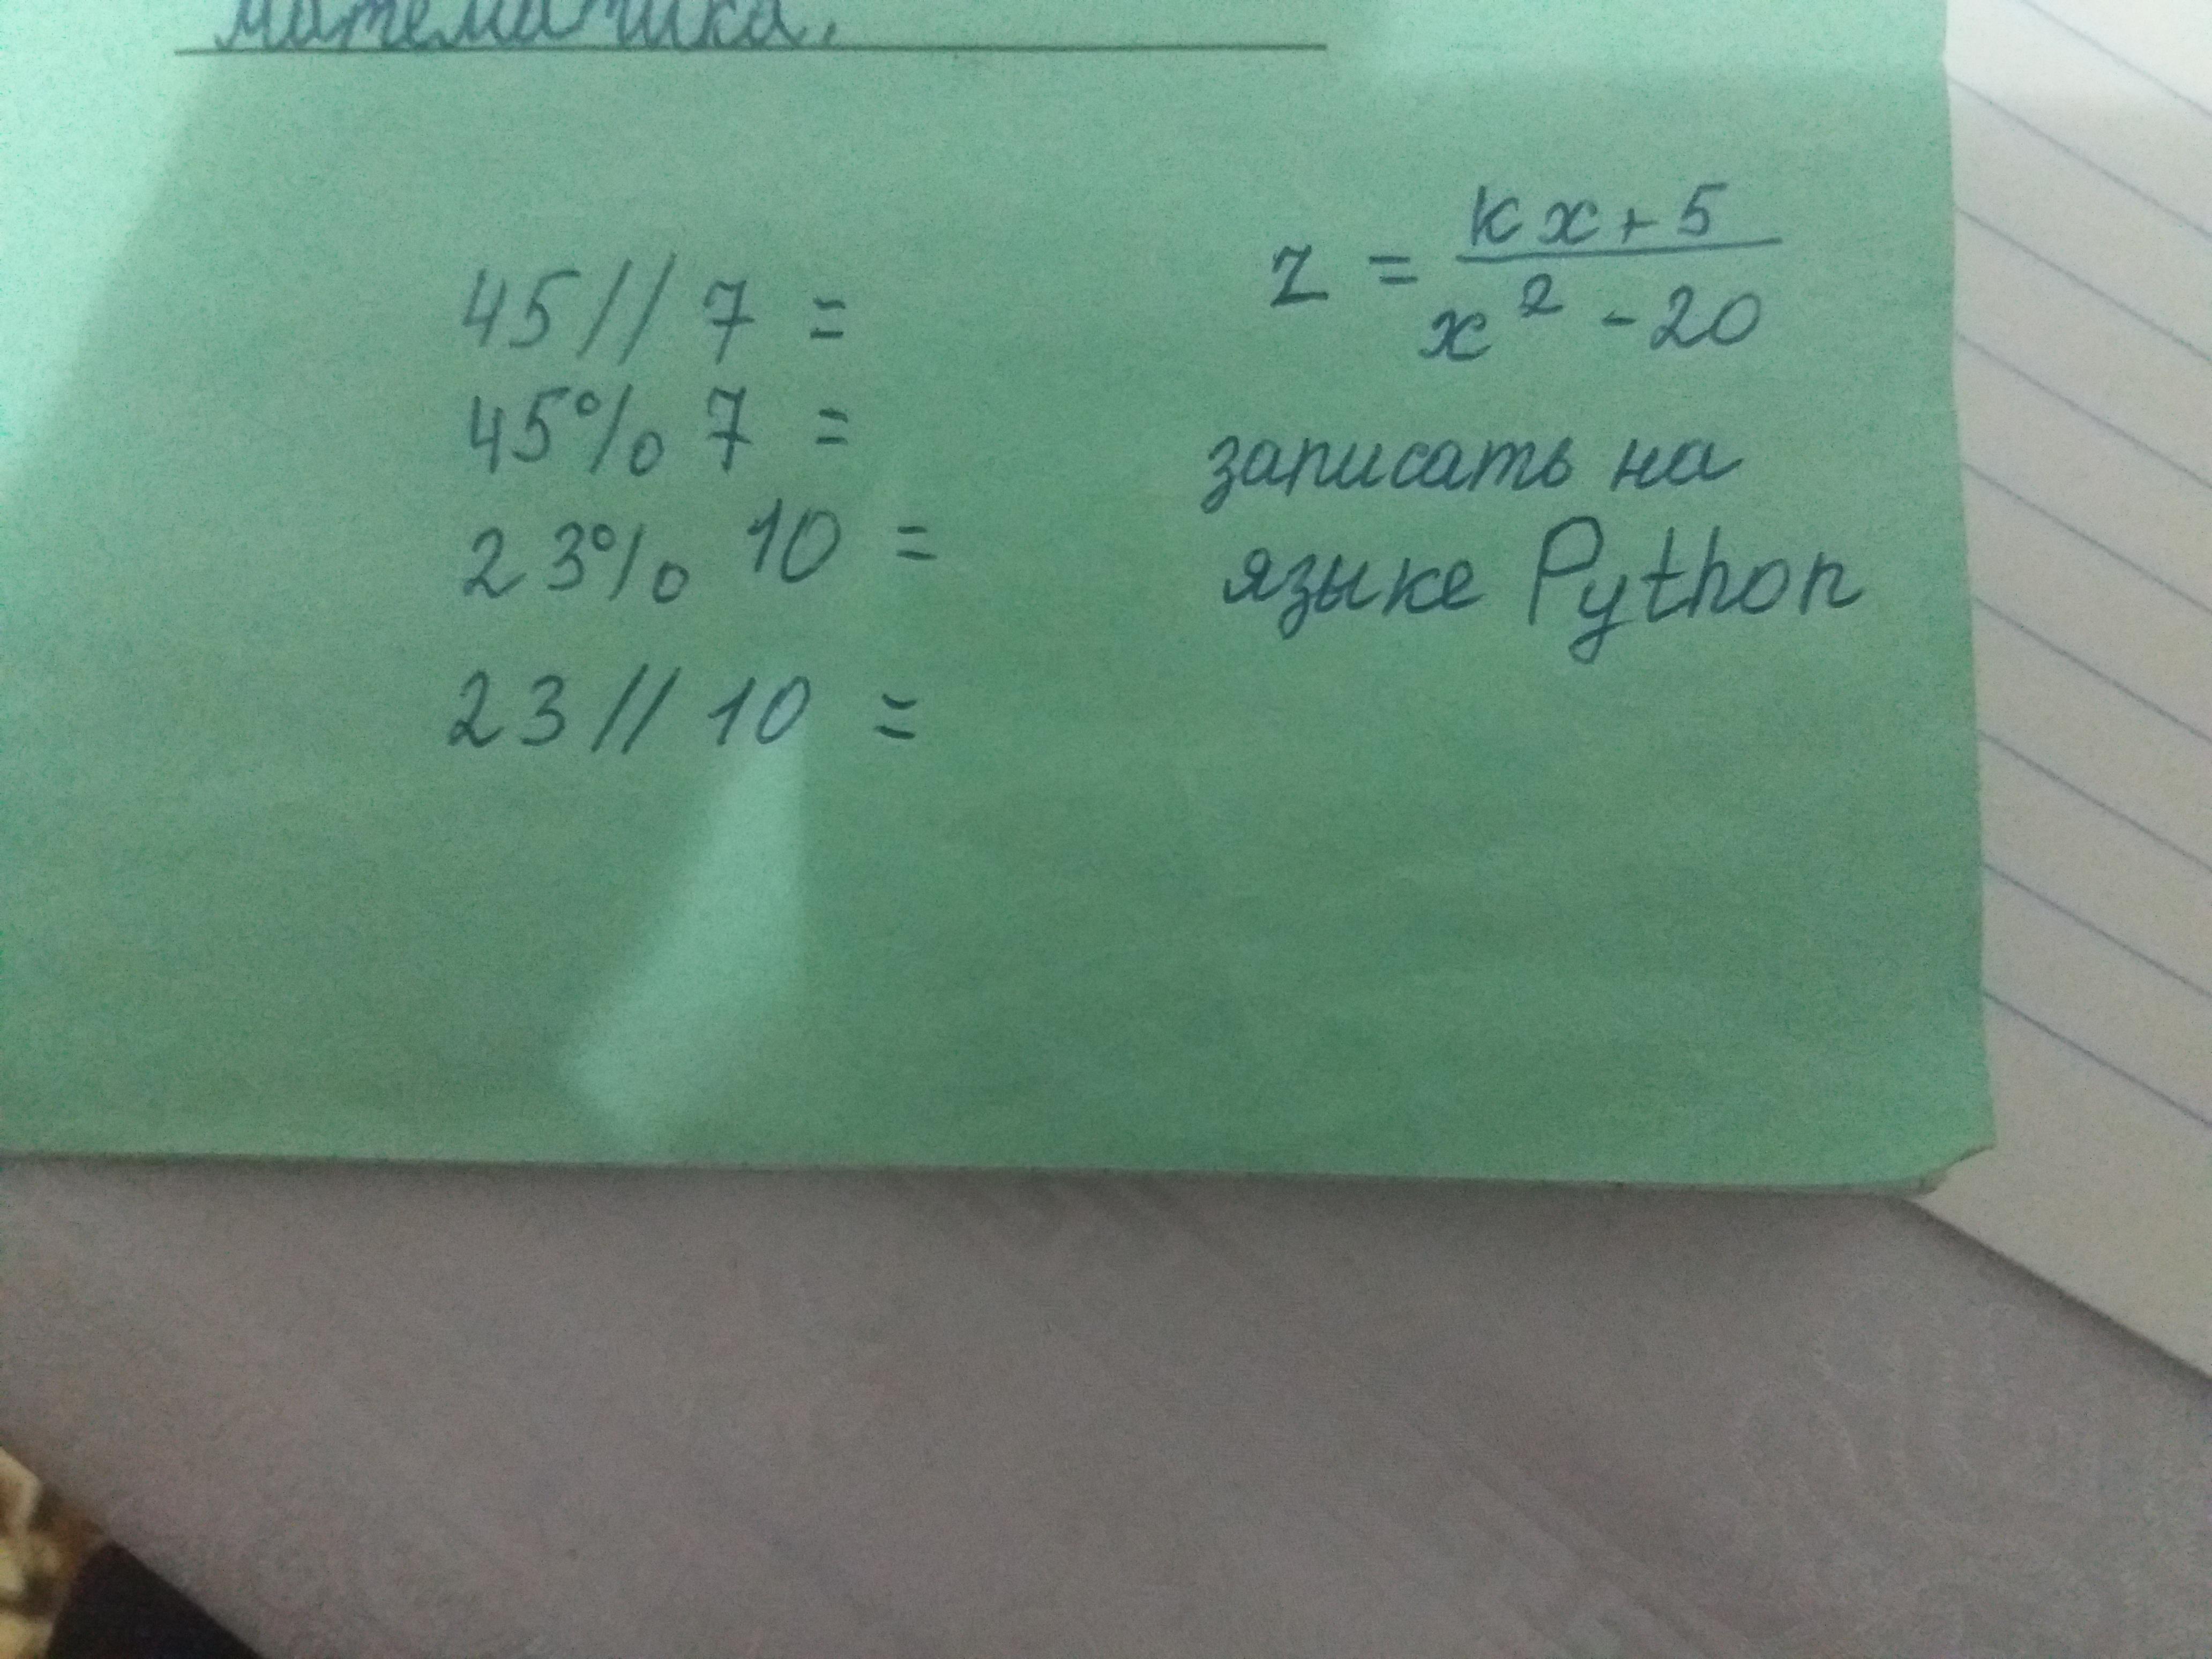 математика.
45 // 7 =
45 % 7 =
23 % 10 =
23 // 10 =
z = \frac{kx + 5}{x² - 20}
записать на
языке Python